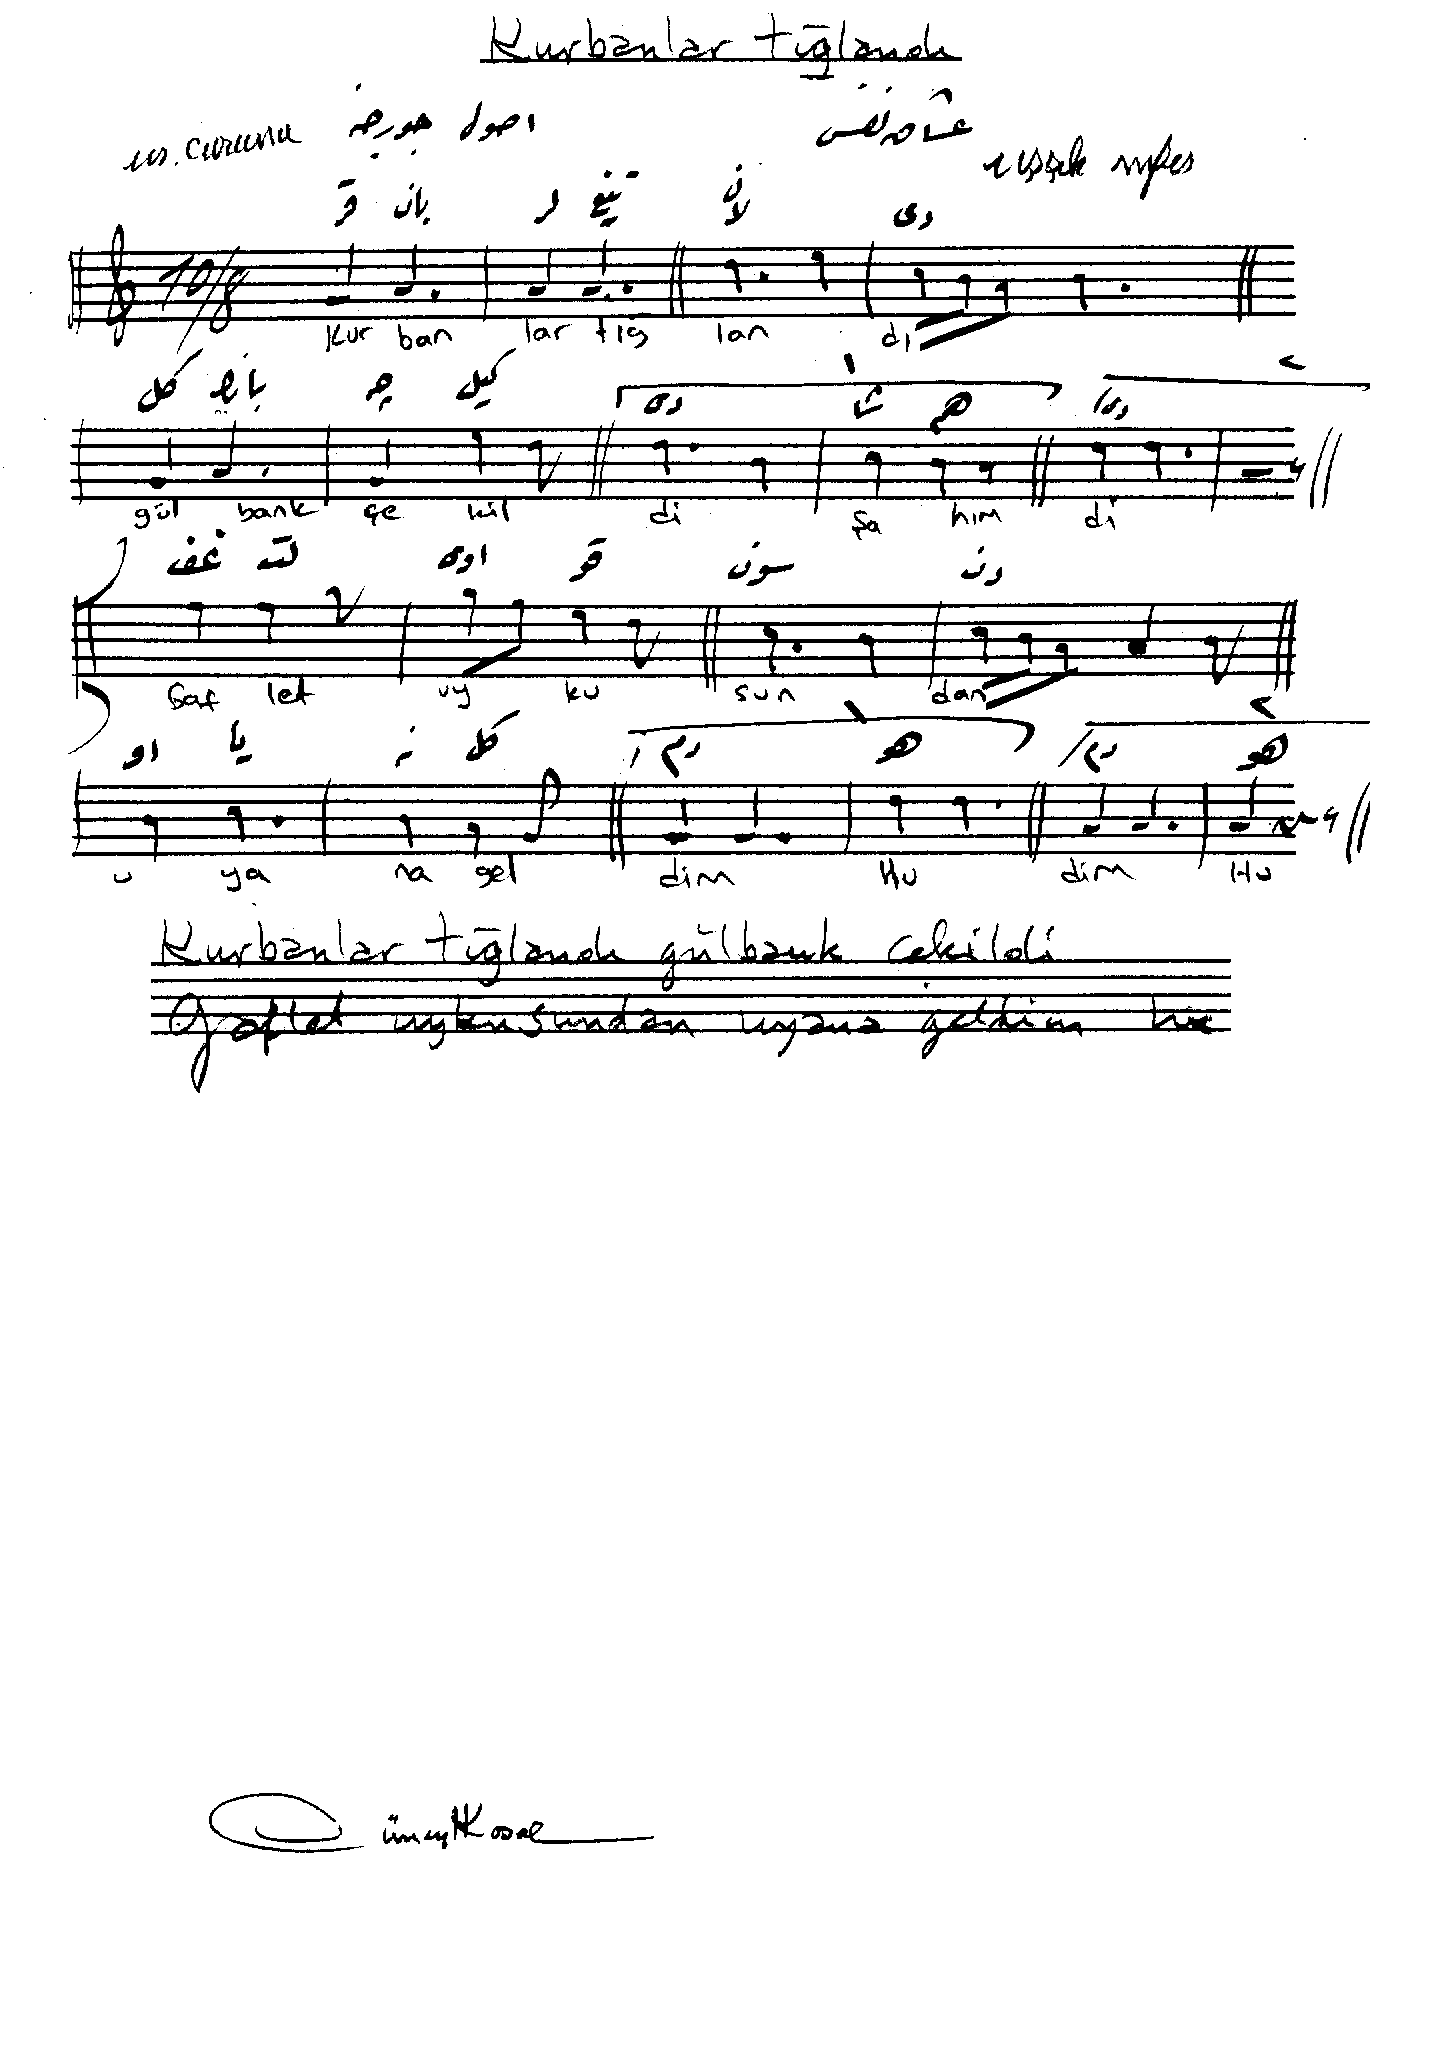 Kurbanlar tığlandı
us. Curcuna اصول جورجنه عشاق نفس uşşak nefes
قر بان لر تیغ لان دی
10/8
Kur ban lar tığ lan dı
كل بانك چه كیل دی شا هم دی
gül bank çe kil di Şa hım di
غف لت اوی قو سون دن
Gaf let uy ku sun dan
او یا نه كل دم هو دم هو
u ya na gel dim Hu dim Hu
Kurbanlar tığlandı gülbank çekildi
Gaflet uykusundan uyana geldim hu
Cüneyt Kosal